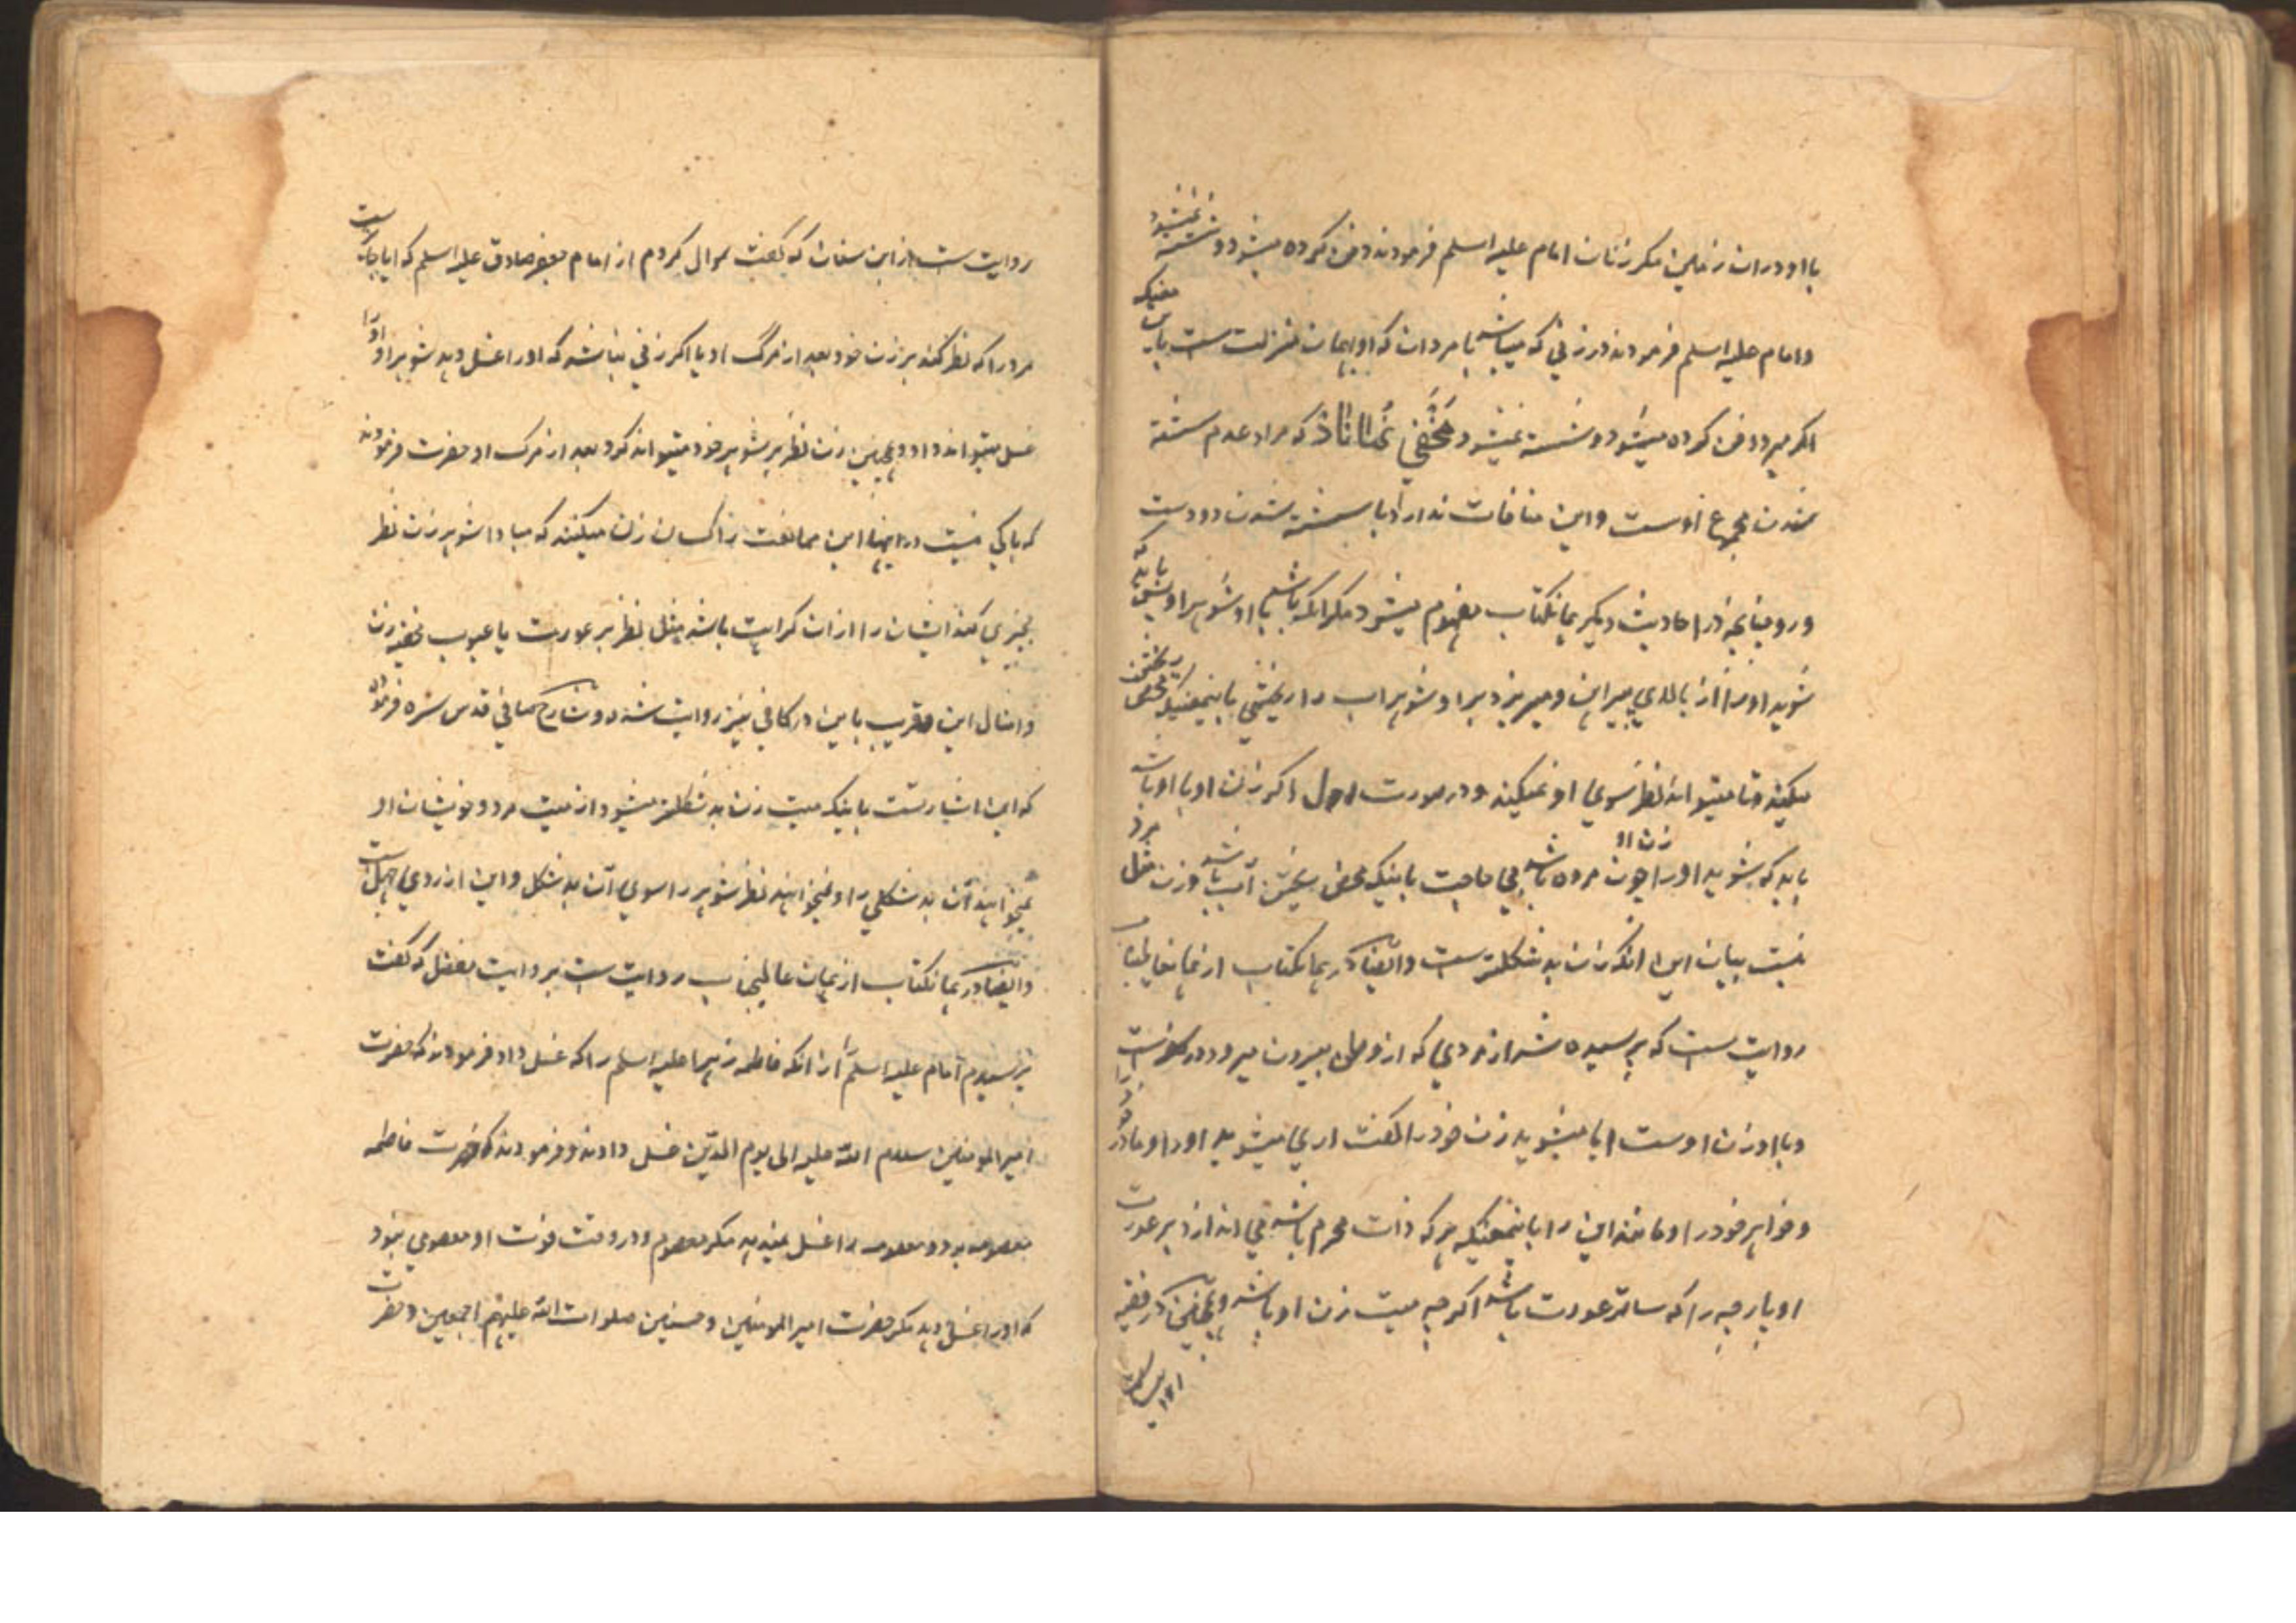 با او در ان زملین مکر زنان امام علیه اسلم فرمودند دفن کرده میشود و شسته نمیشود
وامام علیه اسلم فرمودند در زنی که میباشد با مردان که او بهمان منزلت ست باین معنیکه
اکر میرد دفن کرده میشود و شسته نمیشود مخفی نماناد که مراد عدم شسته
شدن مجموع اوست واین منافات ندارد با شسته شدن دو دست
و رو چنانچه در احادیث دیکر همانکتاب مفهوم میشود مکر انکه باشد با او شوهر او پس باید که
شوید او را از بالای پیراهن و میریزد بر او شوهر اب را ریختنی باینمعنیکه محض ریختن
میکند تا میتواند نظر بسوی او نمیکند و در صورت اول اکر زن او با او باشد
باید که بشوید او را چون زن او مرده باشد بی حاجت باینکه محض ریختن آب باشد و زن مثل مرد
نیست بیان این انکه زن بد شکلتر ست وایضا در همانکتاب از همانعالیجناب
روایت ست که پرسیده شد از مردی که از بیرون میرود در سفرست
و با او زن اوست ایا میشوید زن خود را کفت اری میشوید او را و مادر خود را
و خواهر خود را و مانند این را باینمعنیکه هر که ذات محرم باشد می اندازد بر عورت
او پارچه را که ساتر عورت باشد اکر چه میت زن او باشد و همچنین در فقیه
روایت ست از ابن سنان که کفت سوال کردم از امام جعفر صادق علیه اسلم که ایا جایز ست
مرد را که نظر کند بر زن خود بعد از مرک او یا اکر زنی نباشد که او را غسل دهد شوهر او او را
غسل میتواند داد و همچنین زن نظر بر شوهر خود میتواند کرد بعد از مرک او حضرت فرمودند
که باکی نیست در اینها این ممانعت را کسان زن میکنند که مبادا شوهر زن نظر
بچیزی کند ایشان را از ان کراهت باشد مثل نظر بر عورت یا عیوب مخفیه زن
و امثال این و قریب باین در کافی نیز روایت شده و شارح قدس سره فرموده
که این اشارتست باینکه میت زن بد شکلتر میشود از میت مرد و خویشان او
نمیخواهند آن بد شکلی را و نمیخواهند نظر شوهر را سوی آن بد شکل واین از روی جهل ست
وایضا در همانکتاب از همان عالیجناب روایت ست بروایت مفضل که کفت
پرسیدم امام علیه اسلم را از انکه فاطمه زهرا علیه اسلم را که غسل داد فرمودند که حضرت
امیر المومنین سلام الله علیه الی یوم الدین غسل دادند و فرمودند که حضرت فاطمه
معصومه بود و معصومه را غسل نمیدهد مکر معصوم و در وقت فوت او معصومی نبود
که او را غسل دهد مکر حضرت امیر المومنین و حسنین صلوات الله علیهم اجمعین و حضرت